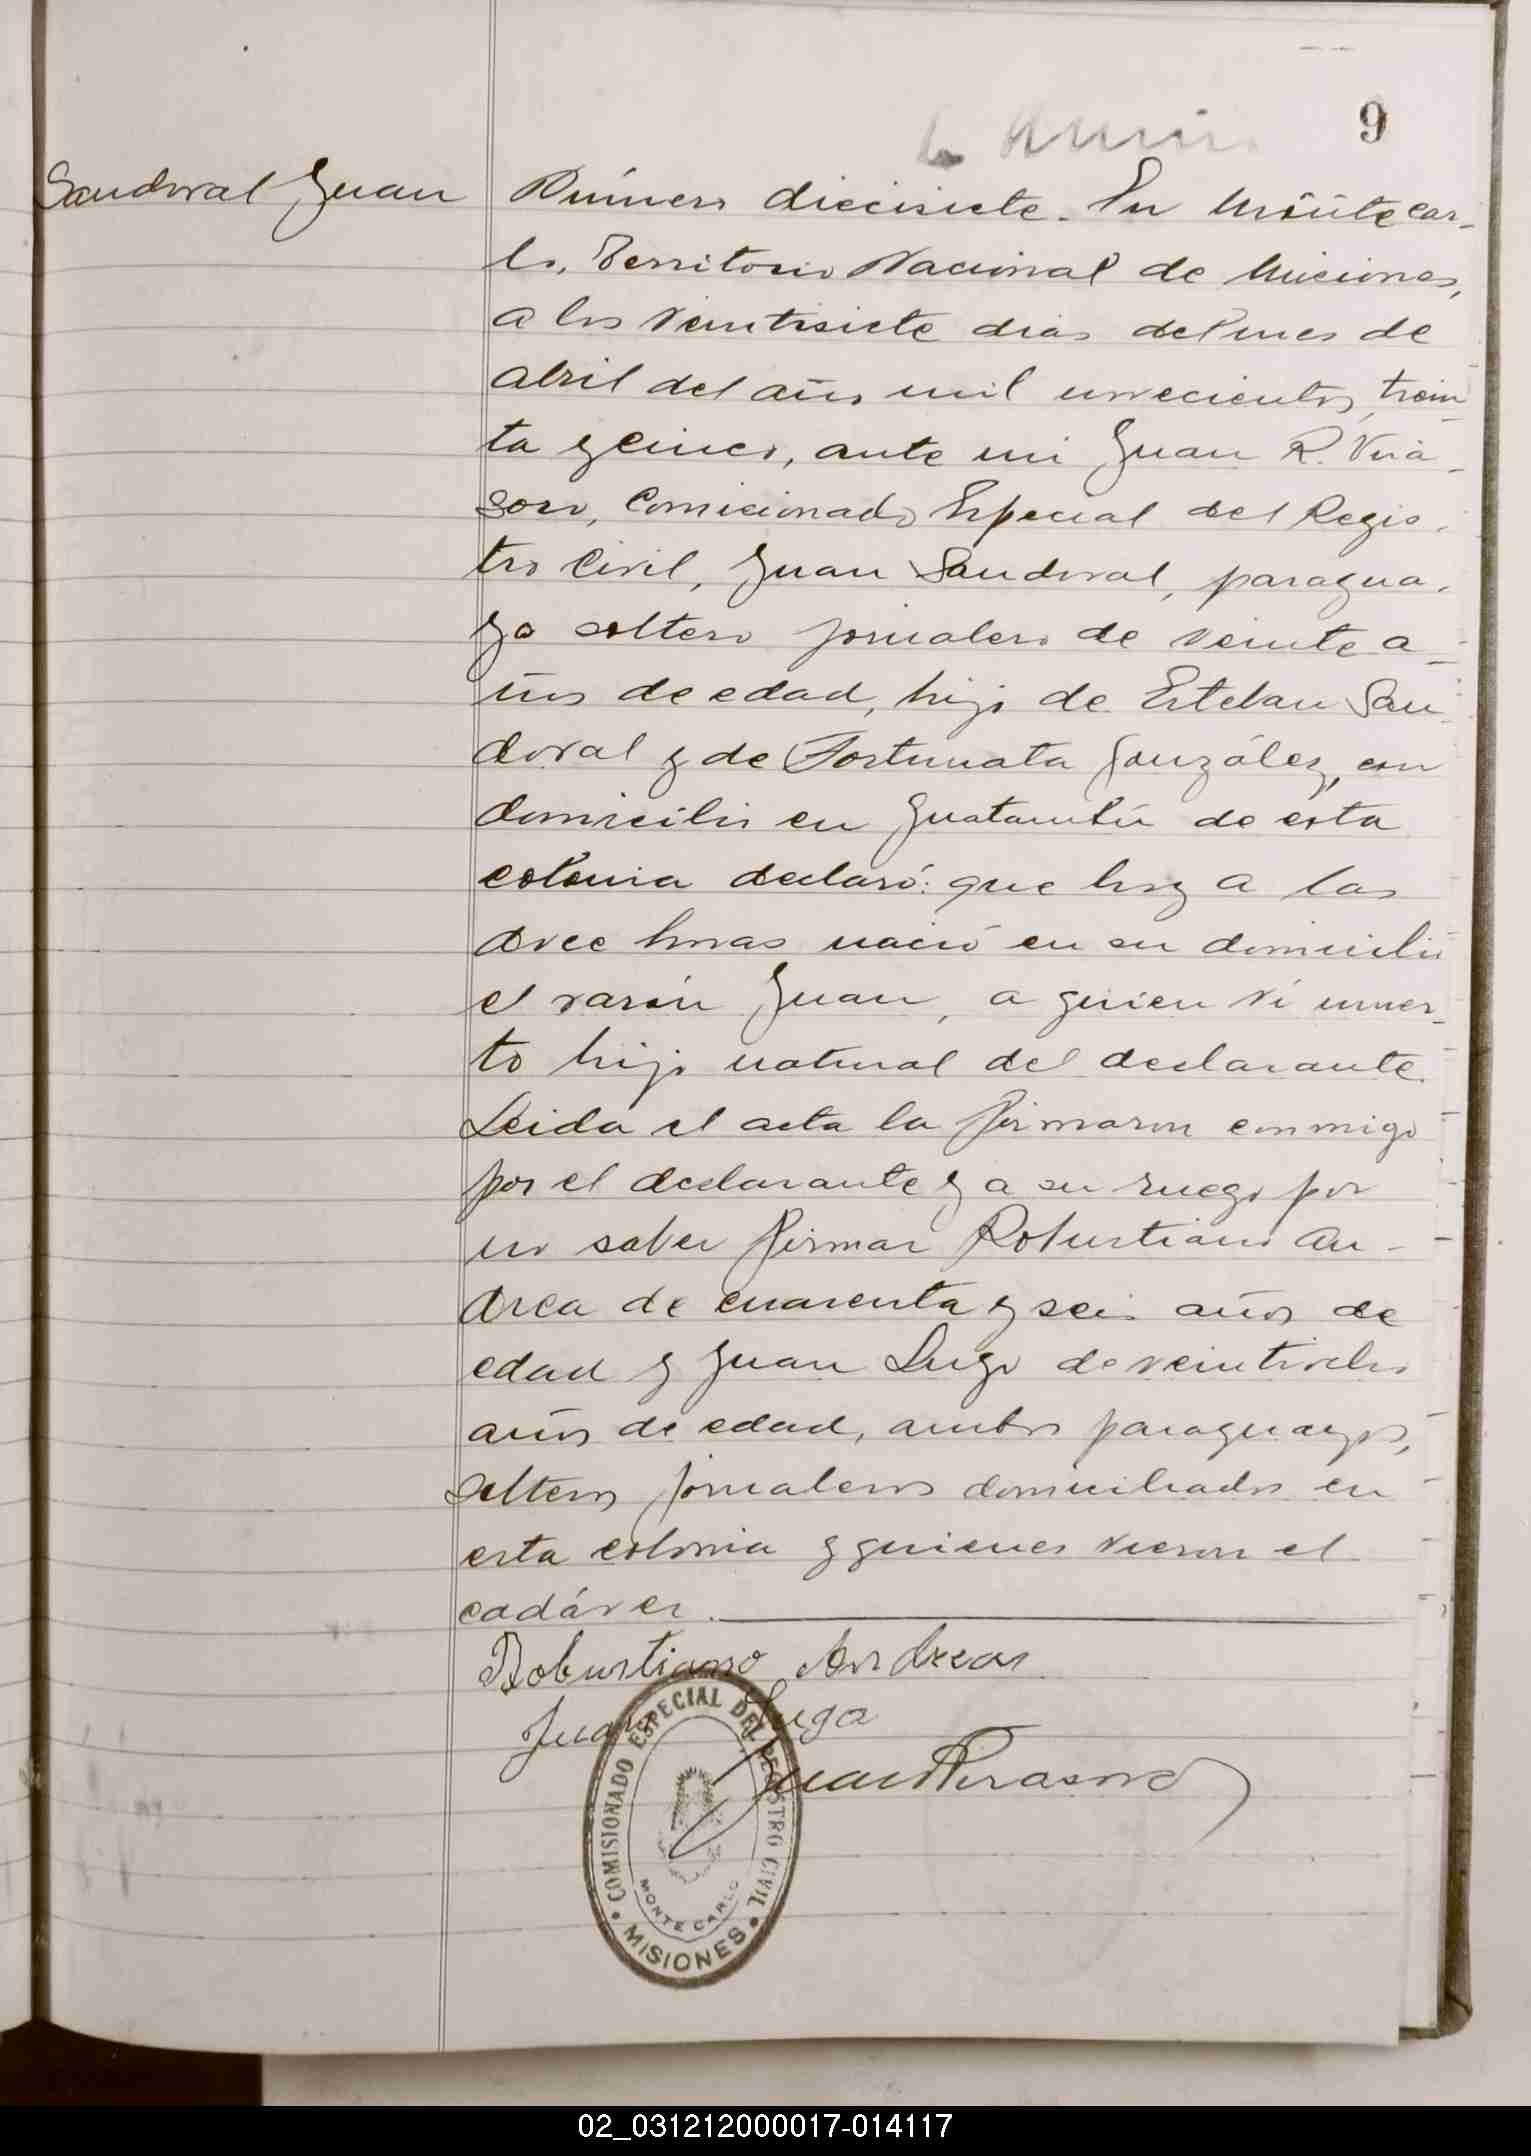 9
Sandoval Juan
Número diecisiete. En Montecar-
lo, Territorio Nacional de Miciones,
a los veintisiete dias del mes de
abril del año mil novecientos trein
ta y cinco, ante mi Juan R. Virá-
soro, Comicionado Especial del Regis-
tro Civil, Juan Sandoval, paragua-
yo soltero jornalero de veinte a-
ños de edad, hijo de Esteban San
doval y de Fortunata González, con
domicilio en Guatambú de esta
colonia declaró: que hoy a las
doce horas nació en su domicilio
el varón Juan, a quien ví muer-
to hijo natural del declarante.
Leida el acta la firmaron conmigo
por el declarante y a su ruego por
no saber firmar Robustiano An-
drea de cuarenta y seis años de
edad y Juan Lugo de veintiocho
años de edad, ambos paraguayos,
solteros jornaleros domiciliados en
esta colonia y quienes vieron el
cadáver.
Robustiano Andreas
Juan Lugo
Juan R Virasoro
COMISIONADO ESPECIAL DEL REGISTRO CIVIL
MONTE CARLO
MISIONES
02_031212000017-014117